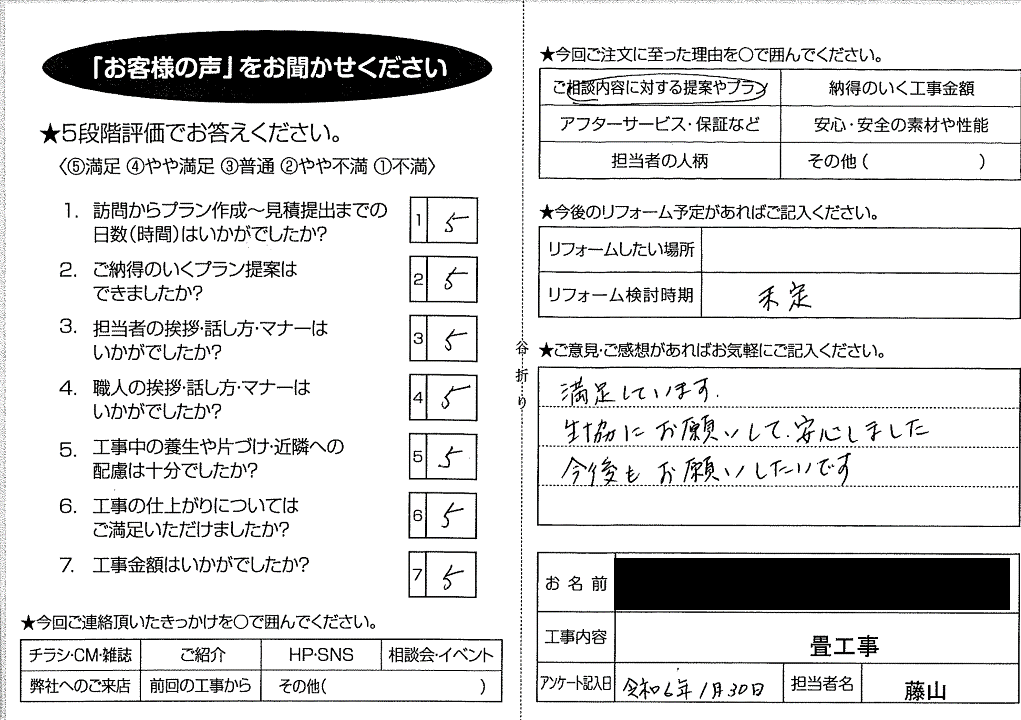 「お客様の声」をお聞かせください
★5段階評価でお答えください。
〈⑤満足 ④やや満足 ③普通 ②やや不満 ①不満〉
1. 訪問からプラン作成～見積提出までの
日数(時間)はいかがでしたか?
1 5
2. ご納得のいくプラン提案は
できましたか?
2 5
3. 担当者の挨拶・話し方・マナーは
いかがでしたか?
3 5
4. 職人の挨拶・話し方・マナーは
いかがでしたか?
4 5
5. 工事中の養生や片づけ・近隣への
配慮は十分でしたか?
5 5
6. 工事の仕上がりについては
ご満足いただけましたか?
6 5
7. 工事金額はいかがでしたか?
7 5
★今回ご連絡頂いたきっかけを〇で囲んでください。
チラシ・CM・雑誌 ご紹介 HP・SNS 相談会・イベント
弊社へのご来店 前回の工事から その他( )
谷折り
★今回ご注文に至った理由を〇で囲んでください。
ご相談内容に対する提案やプラン 納得のいく工事金額
アフターサービス・保証など 安心・安全の素材や性能
担当者の人柄 その他( )
★今後のリフォーム予定があればご記入ください。
リフォームしたい場所
リフォーム検討時期 未定
★ご意見・ご感想があればお気軽にご記入ください。
満足しています.
生協にお願いして、安心しました
今後もお願いしたいです
お名前
工事内容 畳工事
アンケート記入日 令和6年1月30日 担当者名 藤山